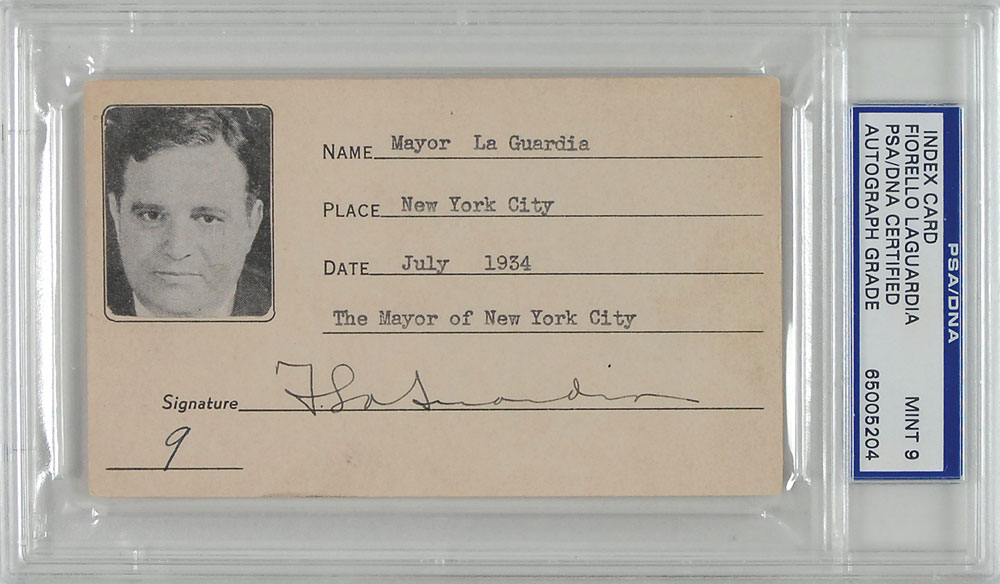 NAME Mayor La Guardia
PLACE New York City
DATE July 1934
The Mayor of New York City
Signature F. La Guardia
9
PSA/DNA
INDEX CARD
FIORELLO LAGUARDIA MINT 9
PSA/DNA CERTIFIED
AUTOGRAPH GRADE 65005204